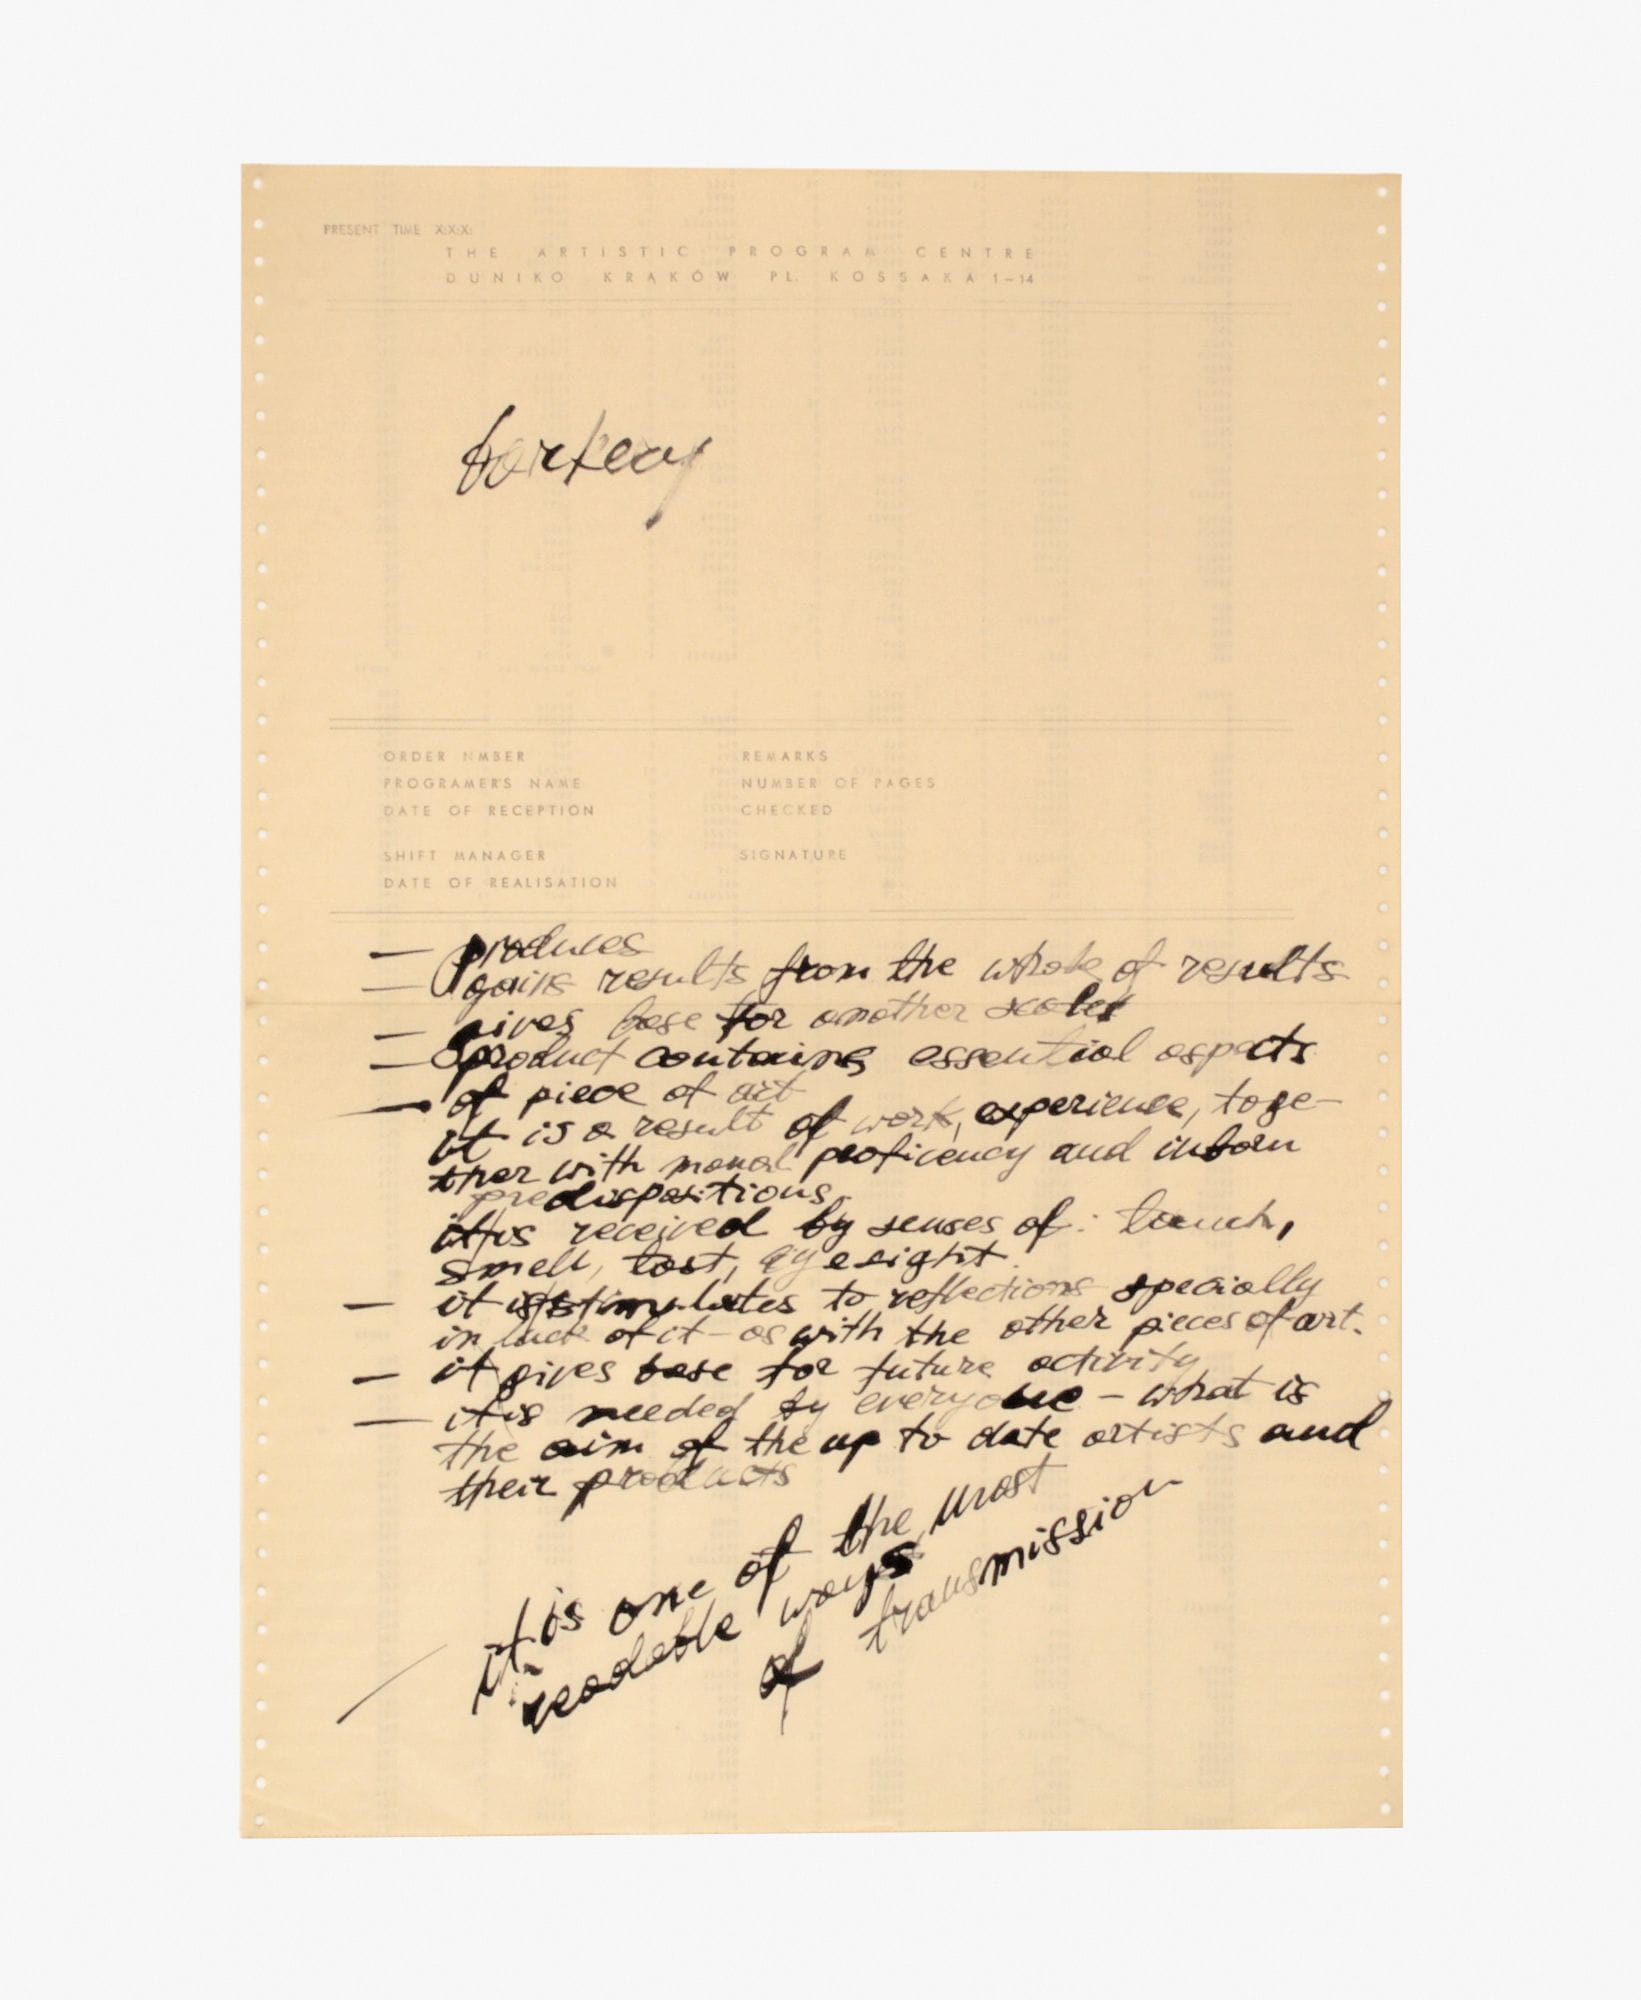 PRESENT TIME X:X:X:
THE ARTISTIC PROGRAM CENTRE
DUNIKO KRAKÓW PL. KOSSAKA 1–14
ORDER NMBER REMARKS
PROGRAMER'S NAME NUMBER OF PAGES
DATE OF RECEPTION CHECKED
SHIFT MANAGER SIGNATURE
DATE OF REALISATION
— produces
— gains results from the whole of results
— gives base for another scales
— product contains essential aspects
— of piece of art
it is a result of work, experience, toge-
ther with manal proficency and inborn
predispositions
it is received by senses of: touch,
smell, tast, eyesight.
— it stimulates to reflections specially
in lack of it – as with the other pieces of art.
— it gives base for future activity
— it is needed by everyone – what is
the aim of the up to date artists and
their products
— it is one of the most
readable ways
of transmission